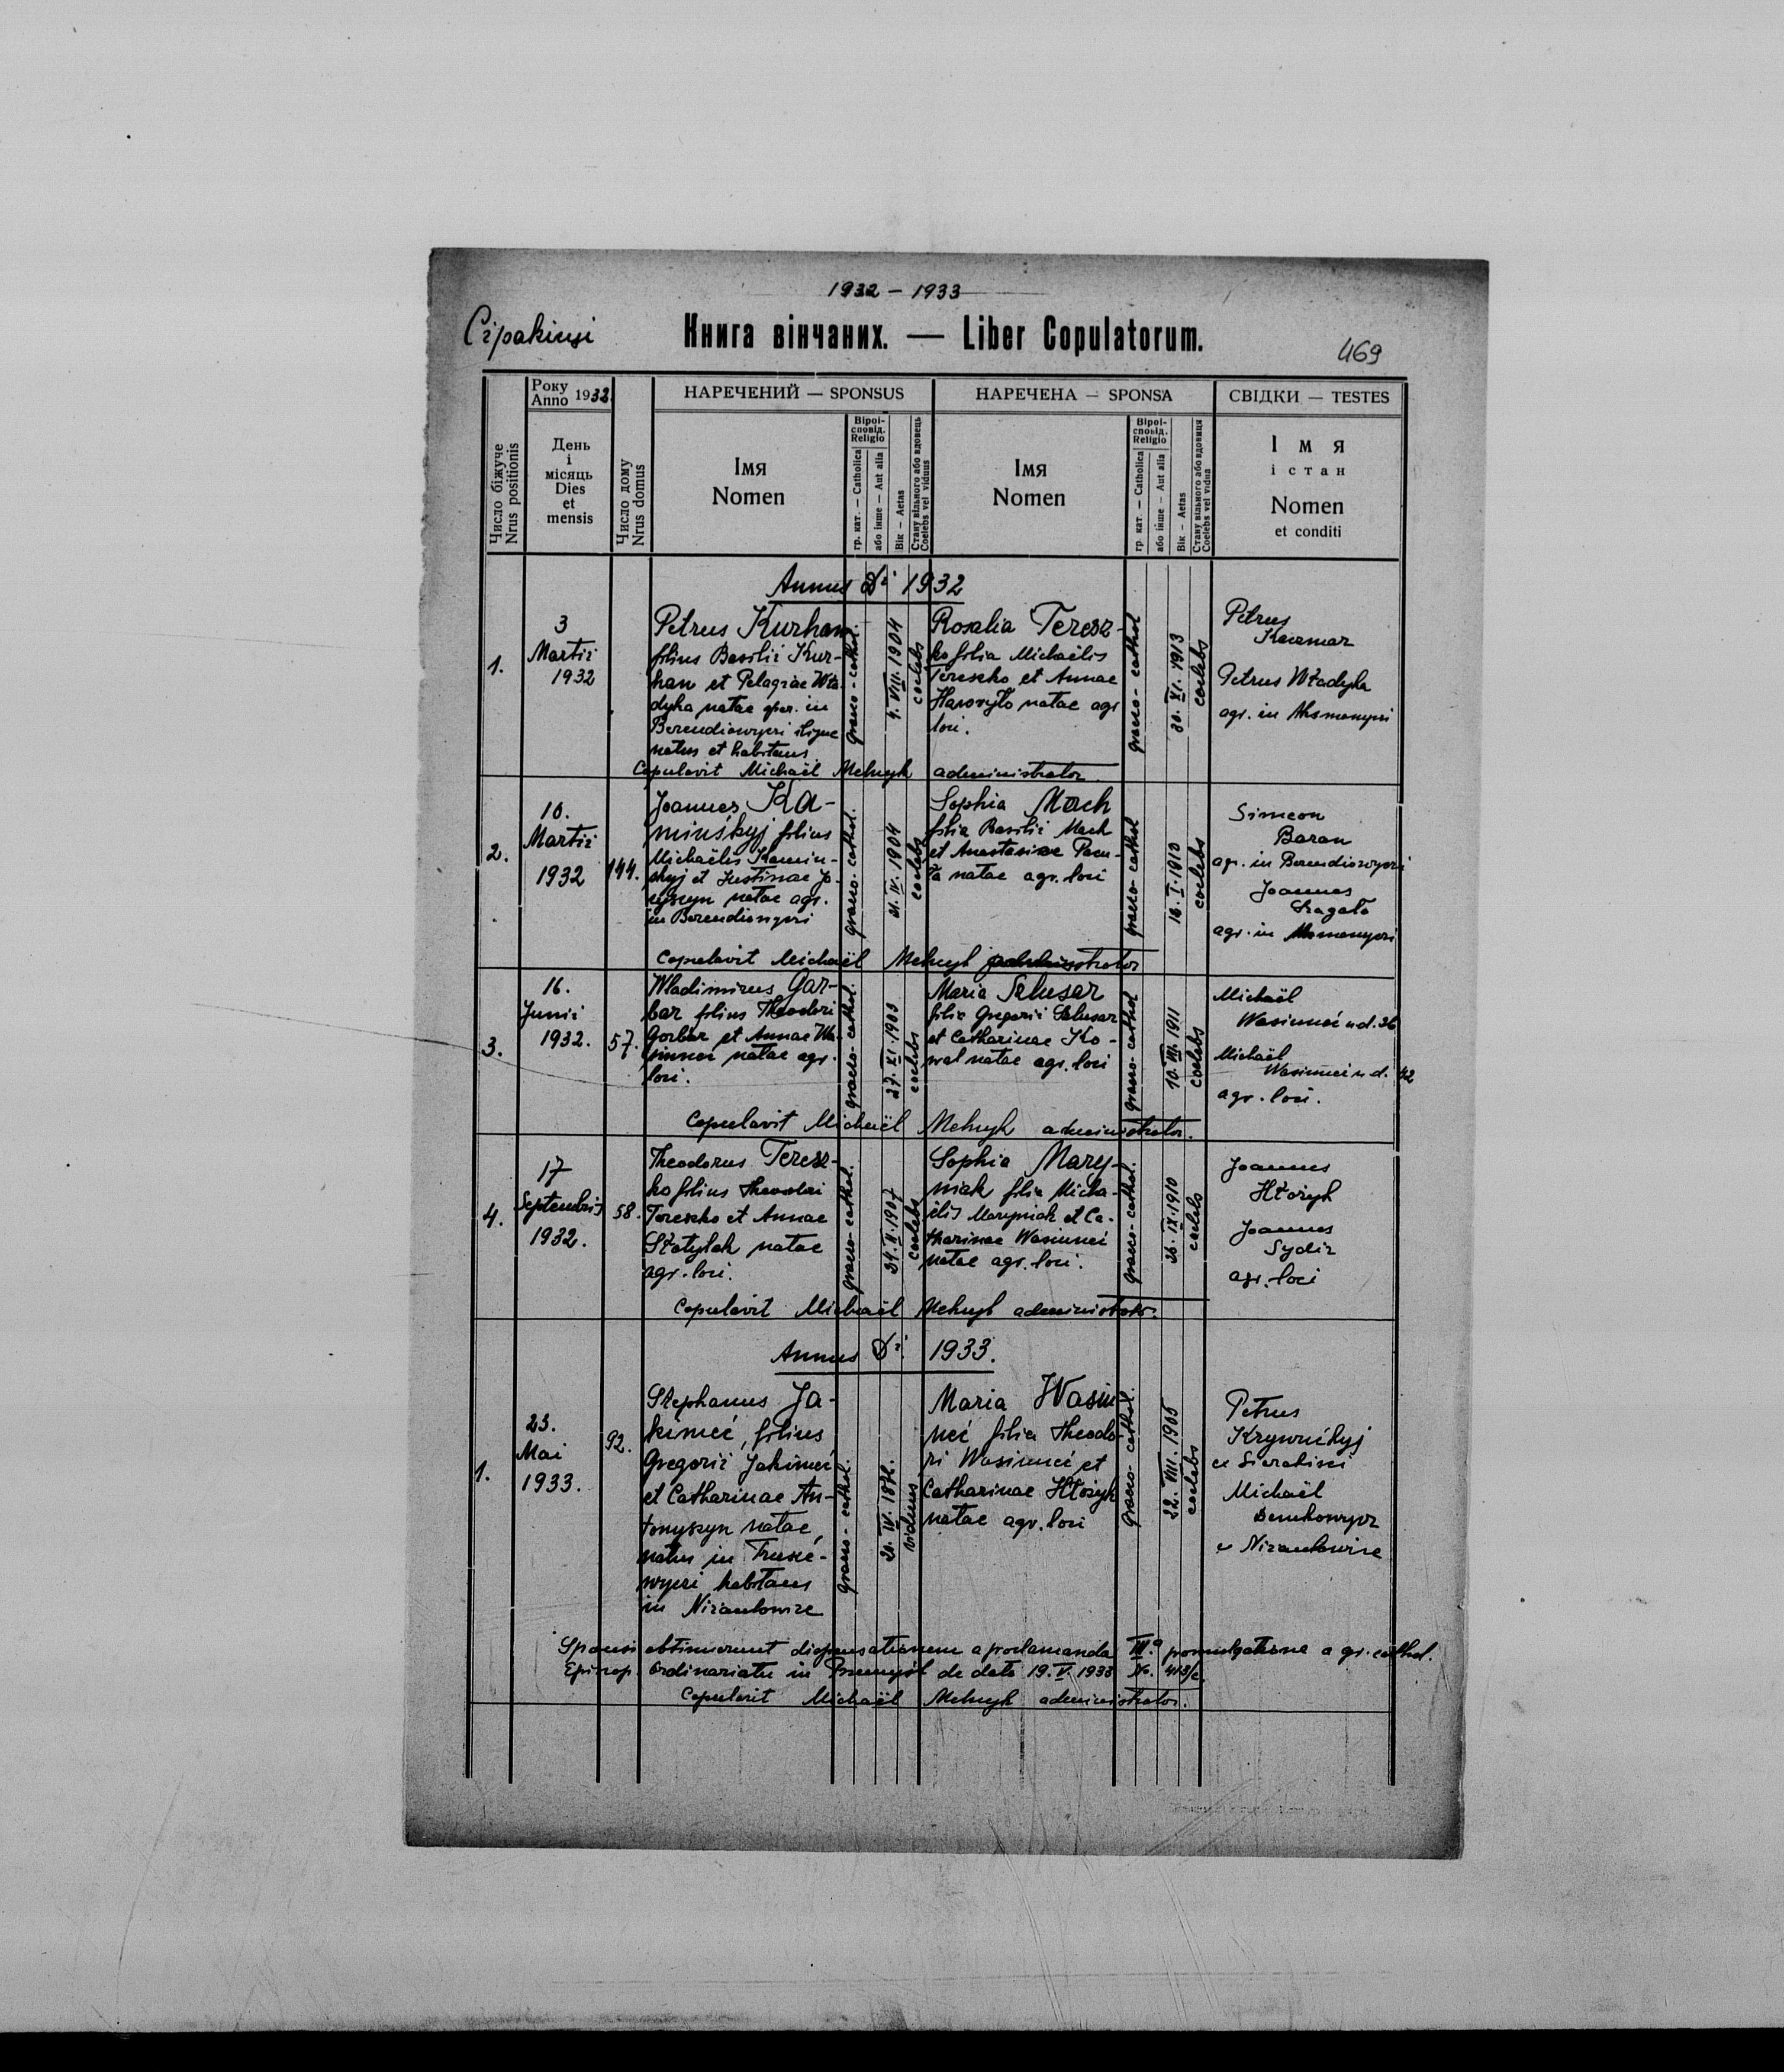 1932 - 1933
Сіракіці
Книга вінчаних. — Liber Copulatorum.
469
Число біжуче
Nrus positionis
Року
Anno 1932.
День
і
місяць
Dies
et
mensis
Число дому
Nrus domus
НАРЕЧЕНИЙ — SPONSUS
Імя
Nomen
Віроі-
сповід.
Religio
гр. кат. — Catholica
або інше — Aut alia
Вік — Aetas
Стану вільного або вдовець
Coelebs vel viduus
НАРЕЧЕНА — SPONSA
Імя
Nomen
Віроі-
сповід.
Religio
гр. кат. — Catholica
або інше — Aut alia
Вік — Aetas
Стану вільного або вдовиця
Coelebs vel vidua
СВІДКИ — TESTES
Імя
і стан
Nomen
et conditi
Annus Di 1932
1.
3
Martii
1932
Petrus Kurhan
filius Basilii Kur-
han et Pelagiae Wła-
dyka natae agr. in
Berendiowyci ibique
natus et habitans
graeco-cathol.
4.VIII.1904
coelebs
Rosalia Teresz-
ko filia Michaëlis
Tereszko et Annae
natae agr
loci.
graeco-cathol
30.XI.1913
coelebs
Petrus
Kaczmar
Petrus Władyka
agr. in
Copulavit Michaël Melnyk administrator.
2.
10.
Martii
1932
144.
Joannes Ka-
mińśkyj filius
Michaëlis Kamin-
śkyj et Justinae
natae agr.
in
graeco-cathol.
21.IV.1904
coelebs
Sophia Mach
filia Basilii Mach
et Anastasiae Pacu-
ła natae agr. loci
graeco-cathol
16.I.1913
coelebs
Simeon
Baran
agr. in
Joannes
agr. in
Copulavit Michaël Melnyk administrator
3.
16.
Junii
1932.
57.
Wladimirus Gar-
bar filius Theodori
Garbar et Annae Wa-
siunci natae agr.
loci.
graeco-cathol.
27.XI.1903
coelebs
Maria Slusar
filia Gregorii Slusar
et Catharinae Ko-
wal natae agr. loci
graeco-cathol
10.III.1911
coelebs
Michaël
Wasiunci n.d. 36
Michaël
Wasiunci n.d. 42
agr. loci.
Copulavit Michaël Melnyk administrator.
4.
17
Septembris
1932.
58.
Theodorus Teresz-
ko filius Theodori
Tereszko et Annae
natae
agr. loci.
graeco-cathol.
24.II.1907
coelebs
Sophia Mary-
niak filia Micha-
ëlis Maryniak et Ca-
tharinae Wasiunci
natae agr. loci.
graeco-cathol.
26.IX.1910
coelebs
Joannes
Hłożyk
Joannes
Sydir
agr. loci
Copulavit Michaël Melnyk administrator.
Annus Di. 1933.
1.
23.
Mai
1933.
92.
Stephanus Ja-
kimci, filius
Gregorii Jakimci
et Catharinae An-
tonyszyn natae,
natus in
habitans
in Niżankowice
graeco-cathol.
viduus
Maria Wasiu
nci filia Theodo-
ri Wasiunci et
Catharinae Hłożyk
natae agr. loci
graeco-cathol.
22.VIII.1905
coelebs
Petrus
Krywućkyj
e
Michaël
Demkowycz
e Niżankowice
Sponsi obtinuerunt dispensationem a proclamanda IIIa promulgatione a gr. cathol.
Episcop. Ordinariatu in Przemyśl de dato 19.V.1933 No.
Copulavit Michaël Melnyk administrator.